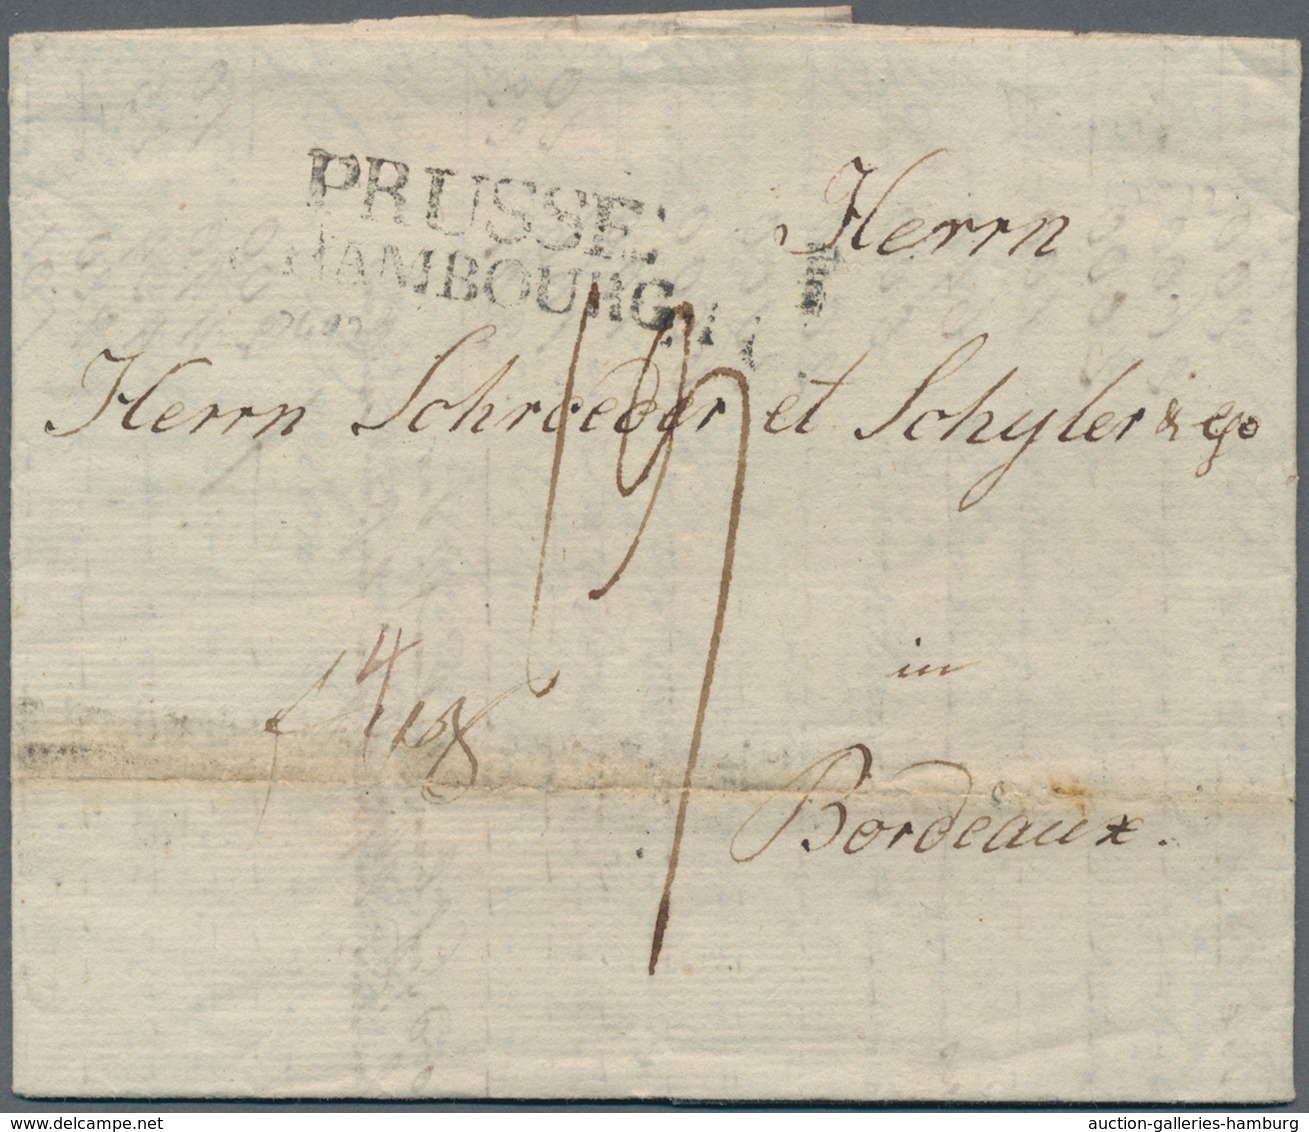 PRUSSE.
HAMBOURG
Herrn
Herrn Schroeder et Schyler & Co
4
in
Bordeaux.
auction-galleries-hamburg